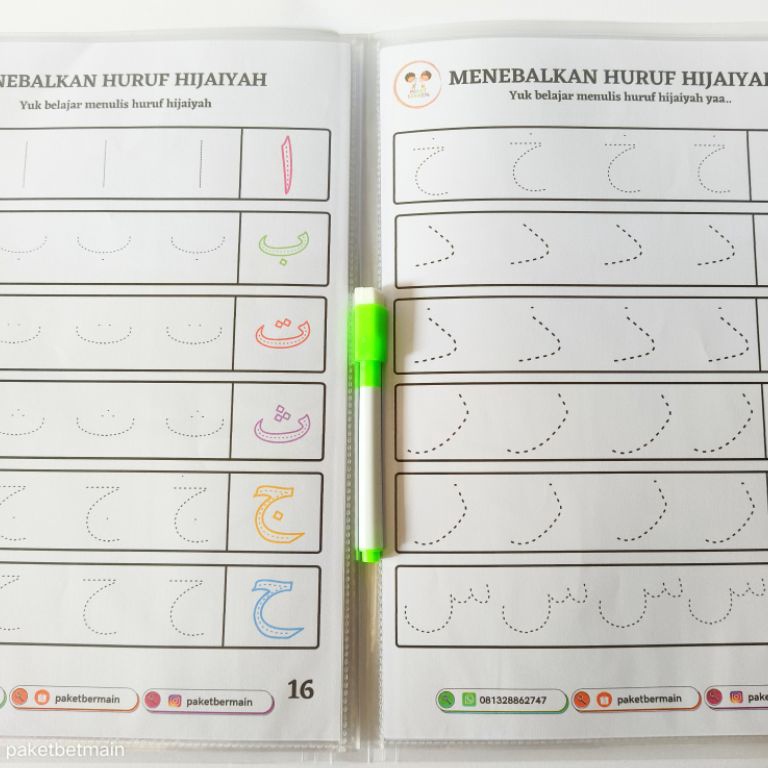 NEBALKAN HURUF HIJAIYAH
Yuk belajar menulis huruf hijaiyah
ا ا ا ا
ب ب ب ب
ت ت ت ت
ث ث ث ث
ج ج ج ج
ح ح ح ح
paketbermain paketbermain
16
MENEBALKAN HURUF HIJAIYAH
Yuk belajar menulis huruf hijaiyah yaa..
خ خ خ خ
د د د د
ذ ذ ذ ذ
ر ر ر ر
ز ز ز ز
س س س س
081328862747 paketbermain pake
paketbetmain